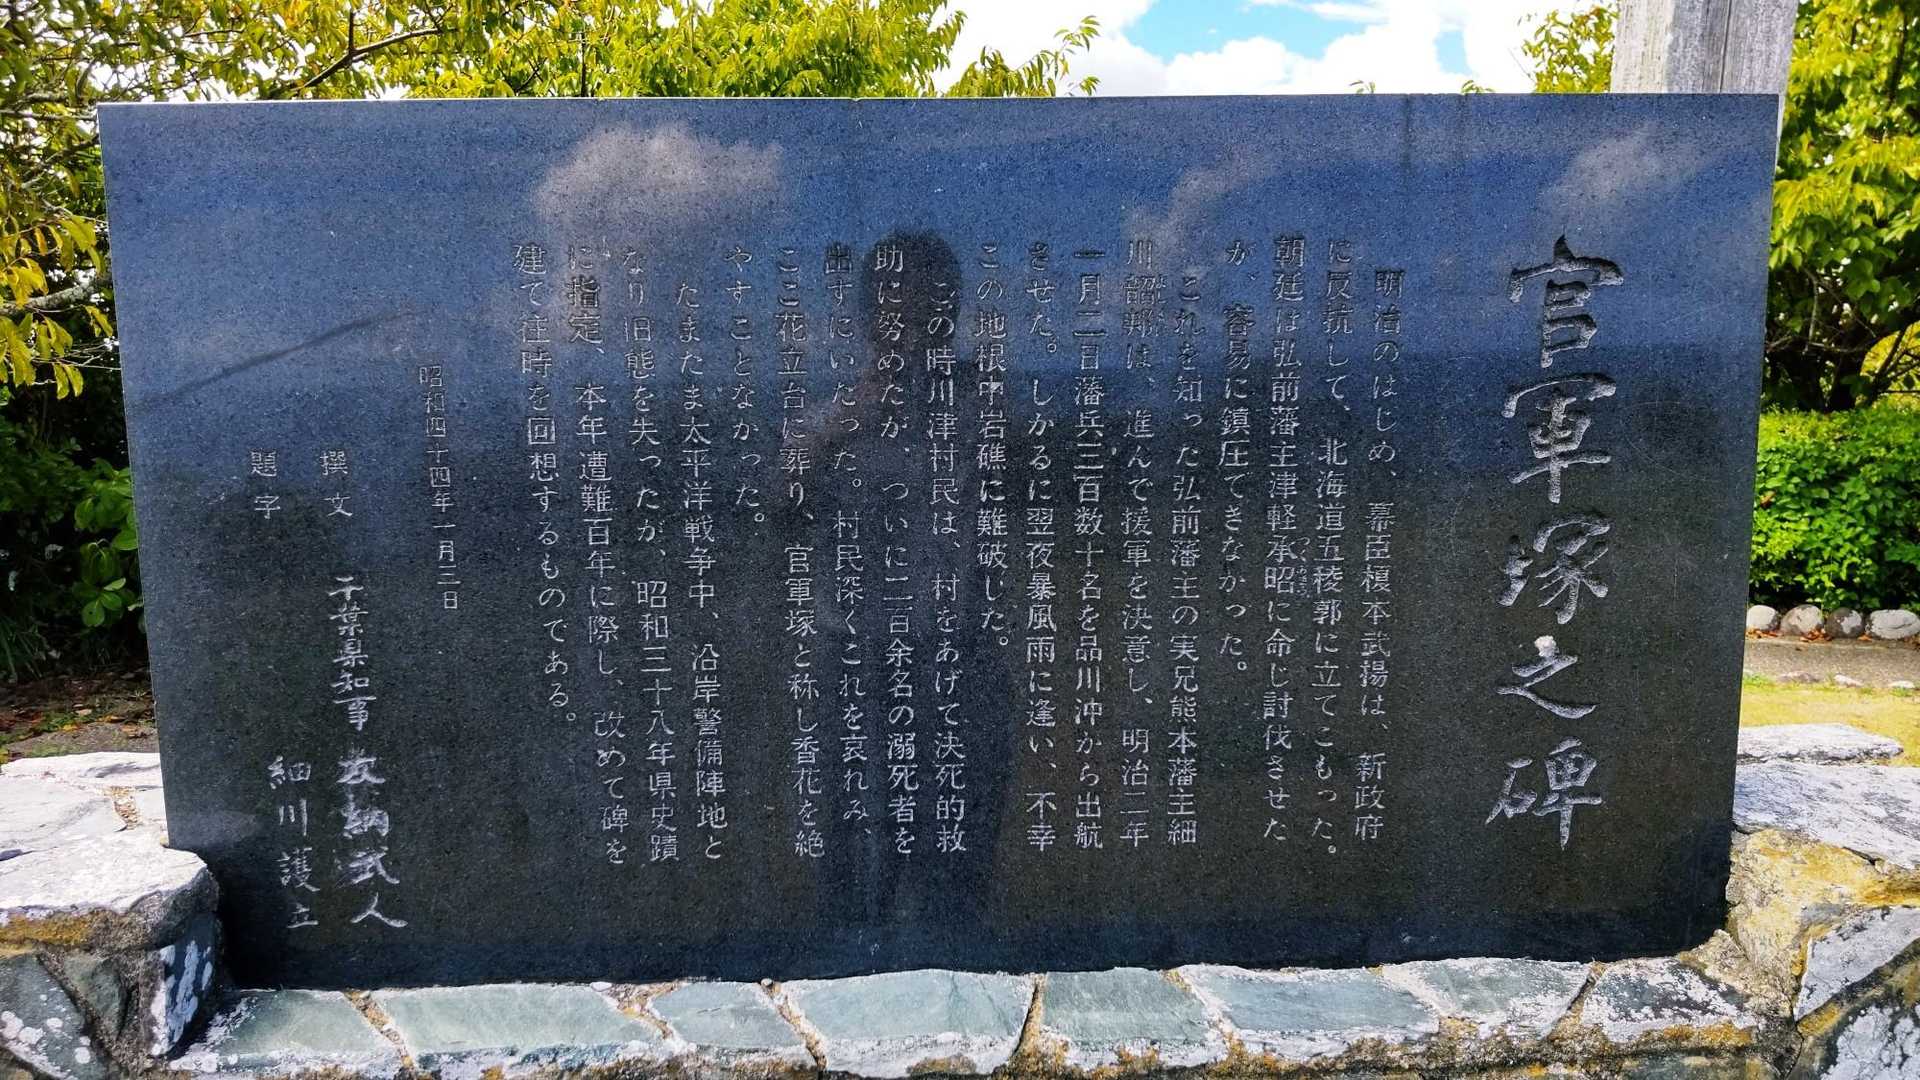 官軍塚之碑
明治のはじめ、幕臣榎本武揚は、新政府
に反抗して、北海道五稜郭に立てこもった。
朝廷は弘前藩主津軽承昭に命じ討伐させた
が、容易に鎮圧できなかった。
これを知った弘前藩主の実兄熊本藩主細
川韶邦は、進んで援軍を決意し、明治二年
一月二日藩兵三百数十名を品川沖から出航
させた。しかるに翌夜暴風雨に逢い、不幸
この地根中岩礁に難破した。
この時川津村民は、村をあげて決死的救
助に努めたが、ついに二百余名の溺死者を
出すにいたった。村民深くこれを哀れみ、
ここ花立台に葬り、官軍塚と称し香花を絶
やすことなかった。
たまたま太平洋戦争中、沿岸警備陣地と
なり旧態を失ったが、昭和三十八年県史蹟
に指定、本年遭難百年に際し、改めて碑を
建て往時を回想するものである。
昭和四十四年一月三日
撰文 千葉県知事 友納武人
題字 細川護立